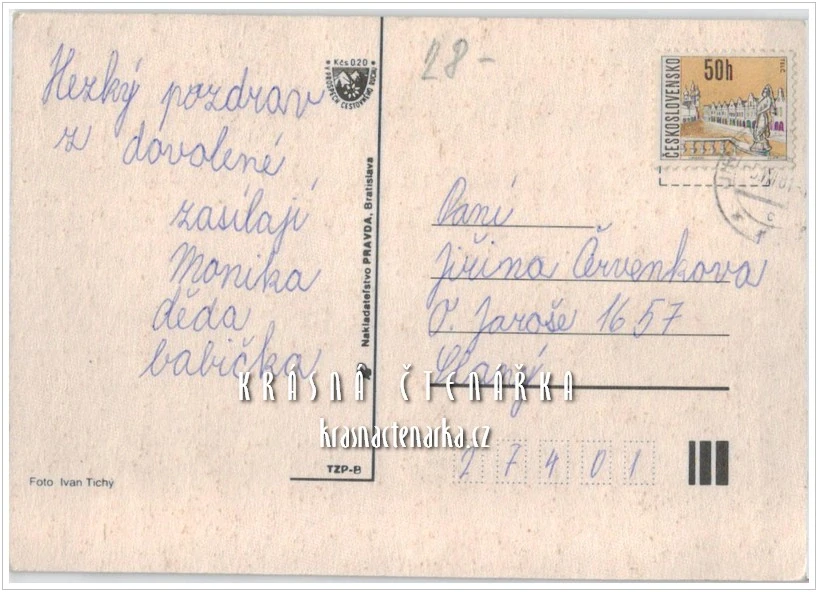 Hezký pozdrav
z dovolené
zasílají
Monika
děda
babička
Foto Ivan Tichý
Kčs 0.20
V PROSPĚCH CESTOVNÉHO RUCHU
Nakladateľstvo PRAVDA, Bratislava
TZP-B
28-
ČESKOSLOVENSKO
50h
Paní
Jiřina Červenkova
O. Jaroše 1657
Slaný
27401
KRÁSNÁ ČTENÁŘKA
krasnactenarka.cz